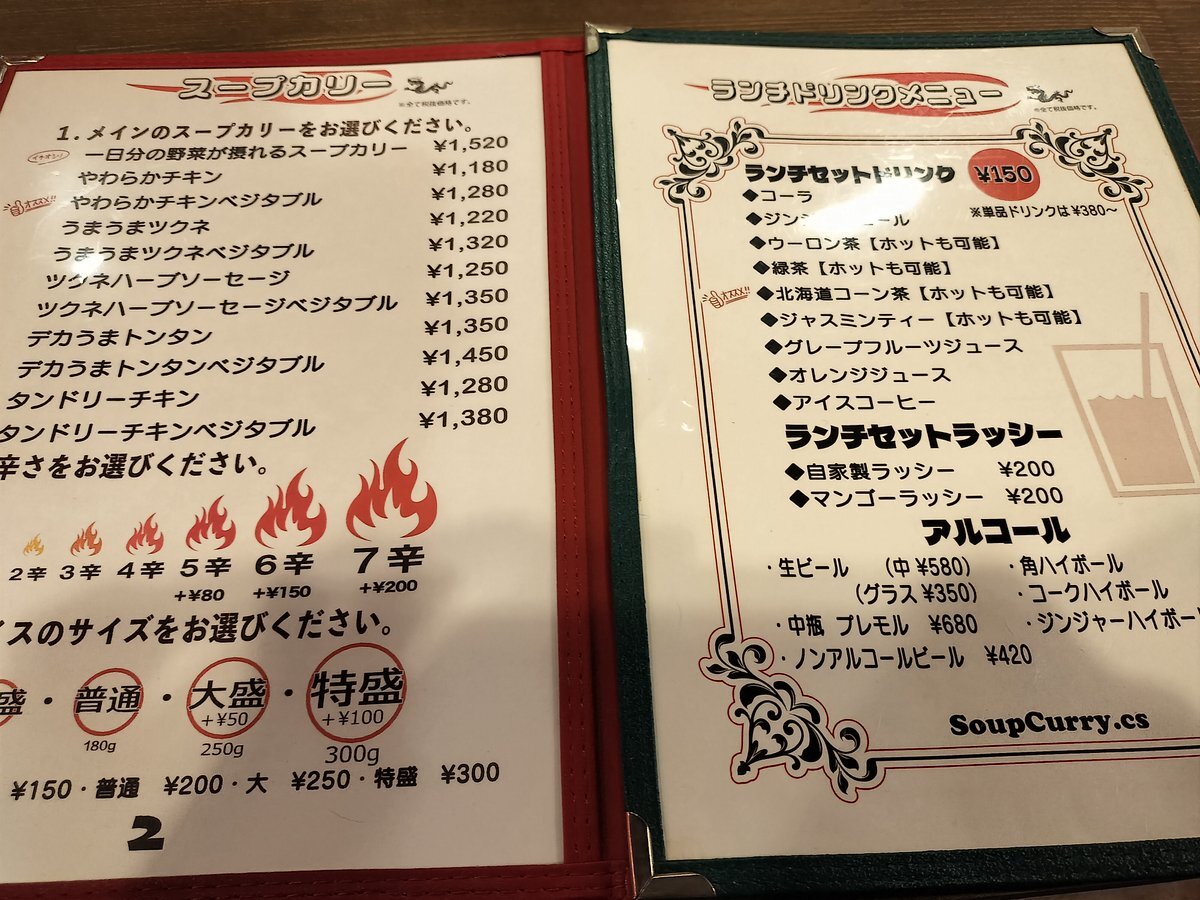 スープカリー
※全て税抜価格です。
1.メインのスープカリーをお選びください。
イチオシ! 一日分の野菜が摂れるスープカリー ¥1,520
やわらかチキン ¥1,180
オススメ!! やわらかチキンベジタブル ¥1,280
うまうまツクネ ¥1,220
うまうまツクネベジタブル ¥1,320
ツクネハーブソーセージ ¥1,250
ツクネハーブソーセージベジタブル ¥1,350
デカうまトンタン ¥1,350
デカうまトンタンベジタブル ¥1,450
タンドリーチキン ¥1,280
タンドリーチキンベジタブル ¥1,380
辛さをお選びください。
2辛 3辛 4辛 5辛 6辛 7辛
+¥80 +¥150 +¥200
イスのサイズをお選びください。
盛・普通・大盛・特盛
+¥50 +¥100
180g 250g 300g
¥150・普通 ¥200・大 ¥250・特盛 ¥300
2
ランチドリンクメニュー
※全て税抜価格です。
ランチセットドリンク ¥150
◆コーラ
※単品ドリンクは¥380~
◆ジン ール
◆ウーロン茶【ホットも可能】
◆緑茶【ホットも可能】
オススメ!! ◆北海道コーン茶【ホットも可能】
◆ジャスミンティー【ホットも可能】
◆グレープフルーツジュース
◆オレンジジュース
◆アイスコーヒー
ランチセットラッシー
◆自家製ラッシー ¥200
◆マンゴーラッシー ¥200
アルコール
・生ビール (中 ¥580) ・角ハイボール
(グラス ¥350) ・コークハイボール
・中瓶 プレモル ¥680 ・ジンジャーハイボー
・ノンアルコールビール ¥420
SoupCurry.cs